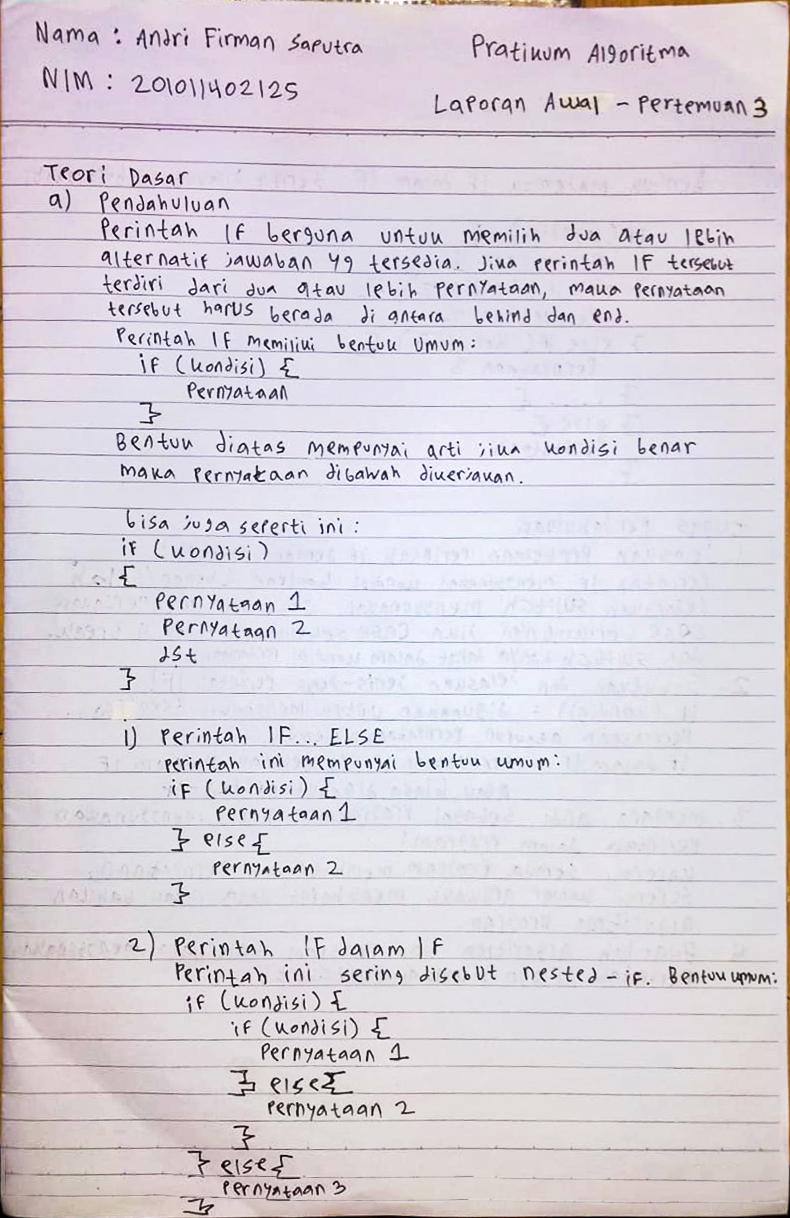 Nama : Andri Firman Saputra
NIM : 201011402125
Pratikum Algoritma
Laporan Awal - Pertemuan 3
Teori Dasar
a) Pendahuluan
Perintah IF berguna untuk memilih dua atau lebih
alternatif jawaban yg tersedia. Jika perintah IF tersebut
terdiri dari dua atau lebih pernyataan, maka pernyataan
tersebut harus berada di antara behind dan end.
Perintah IF memiliki bentuk umum :
if (kondisi) {
Pernyataan
}
Bentuk diatas mempunyai arti jika kondisi benar
maka pernyataan dibawah dikerjakan.
bisa juga seperti ini :
if (kondisi)
{
Pernyataan 1
Pernyataan 2
dst
}
1) Perintah IF... ELSE
perintah ini mempunyai bentuk umum :
if (kondisi) {
Pernyataan 1
} else {
Pernyataan 2
}
2) Perintah IF dalam IF
Perintah ini sering disebut nested - if. Bentuk umum :
if (kondisi) {
if (kondisi) {
Pernyataan 1
} else {
Pernyataan 2
}
} else {
Pernyataan 3
}